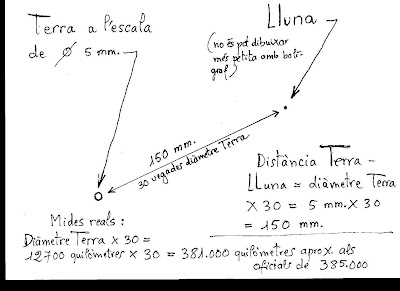 Terra a l'escala
de ∅ 5 mm.
Lluna
(no és pot dibuixar
més petita amb bolí-
graf)
150 mm.
30 vegades diàmetre Terra
Distància Terra -
LLuna = diàmetre Terra
x 30 = 5 mm. x 30
= 150 mm.
Mides reals :
Diàmetre Terra x 30 =
12700 quilòmetres x 30 = 381.000 quilòmetres aprox. als
oficials de 385.000